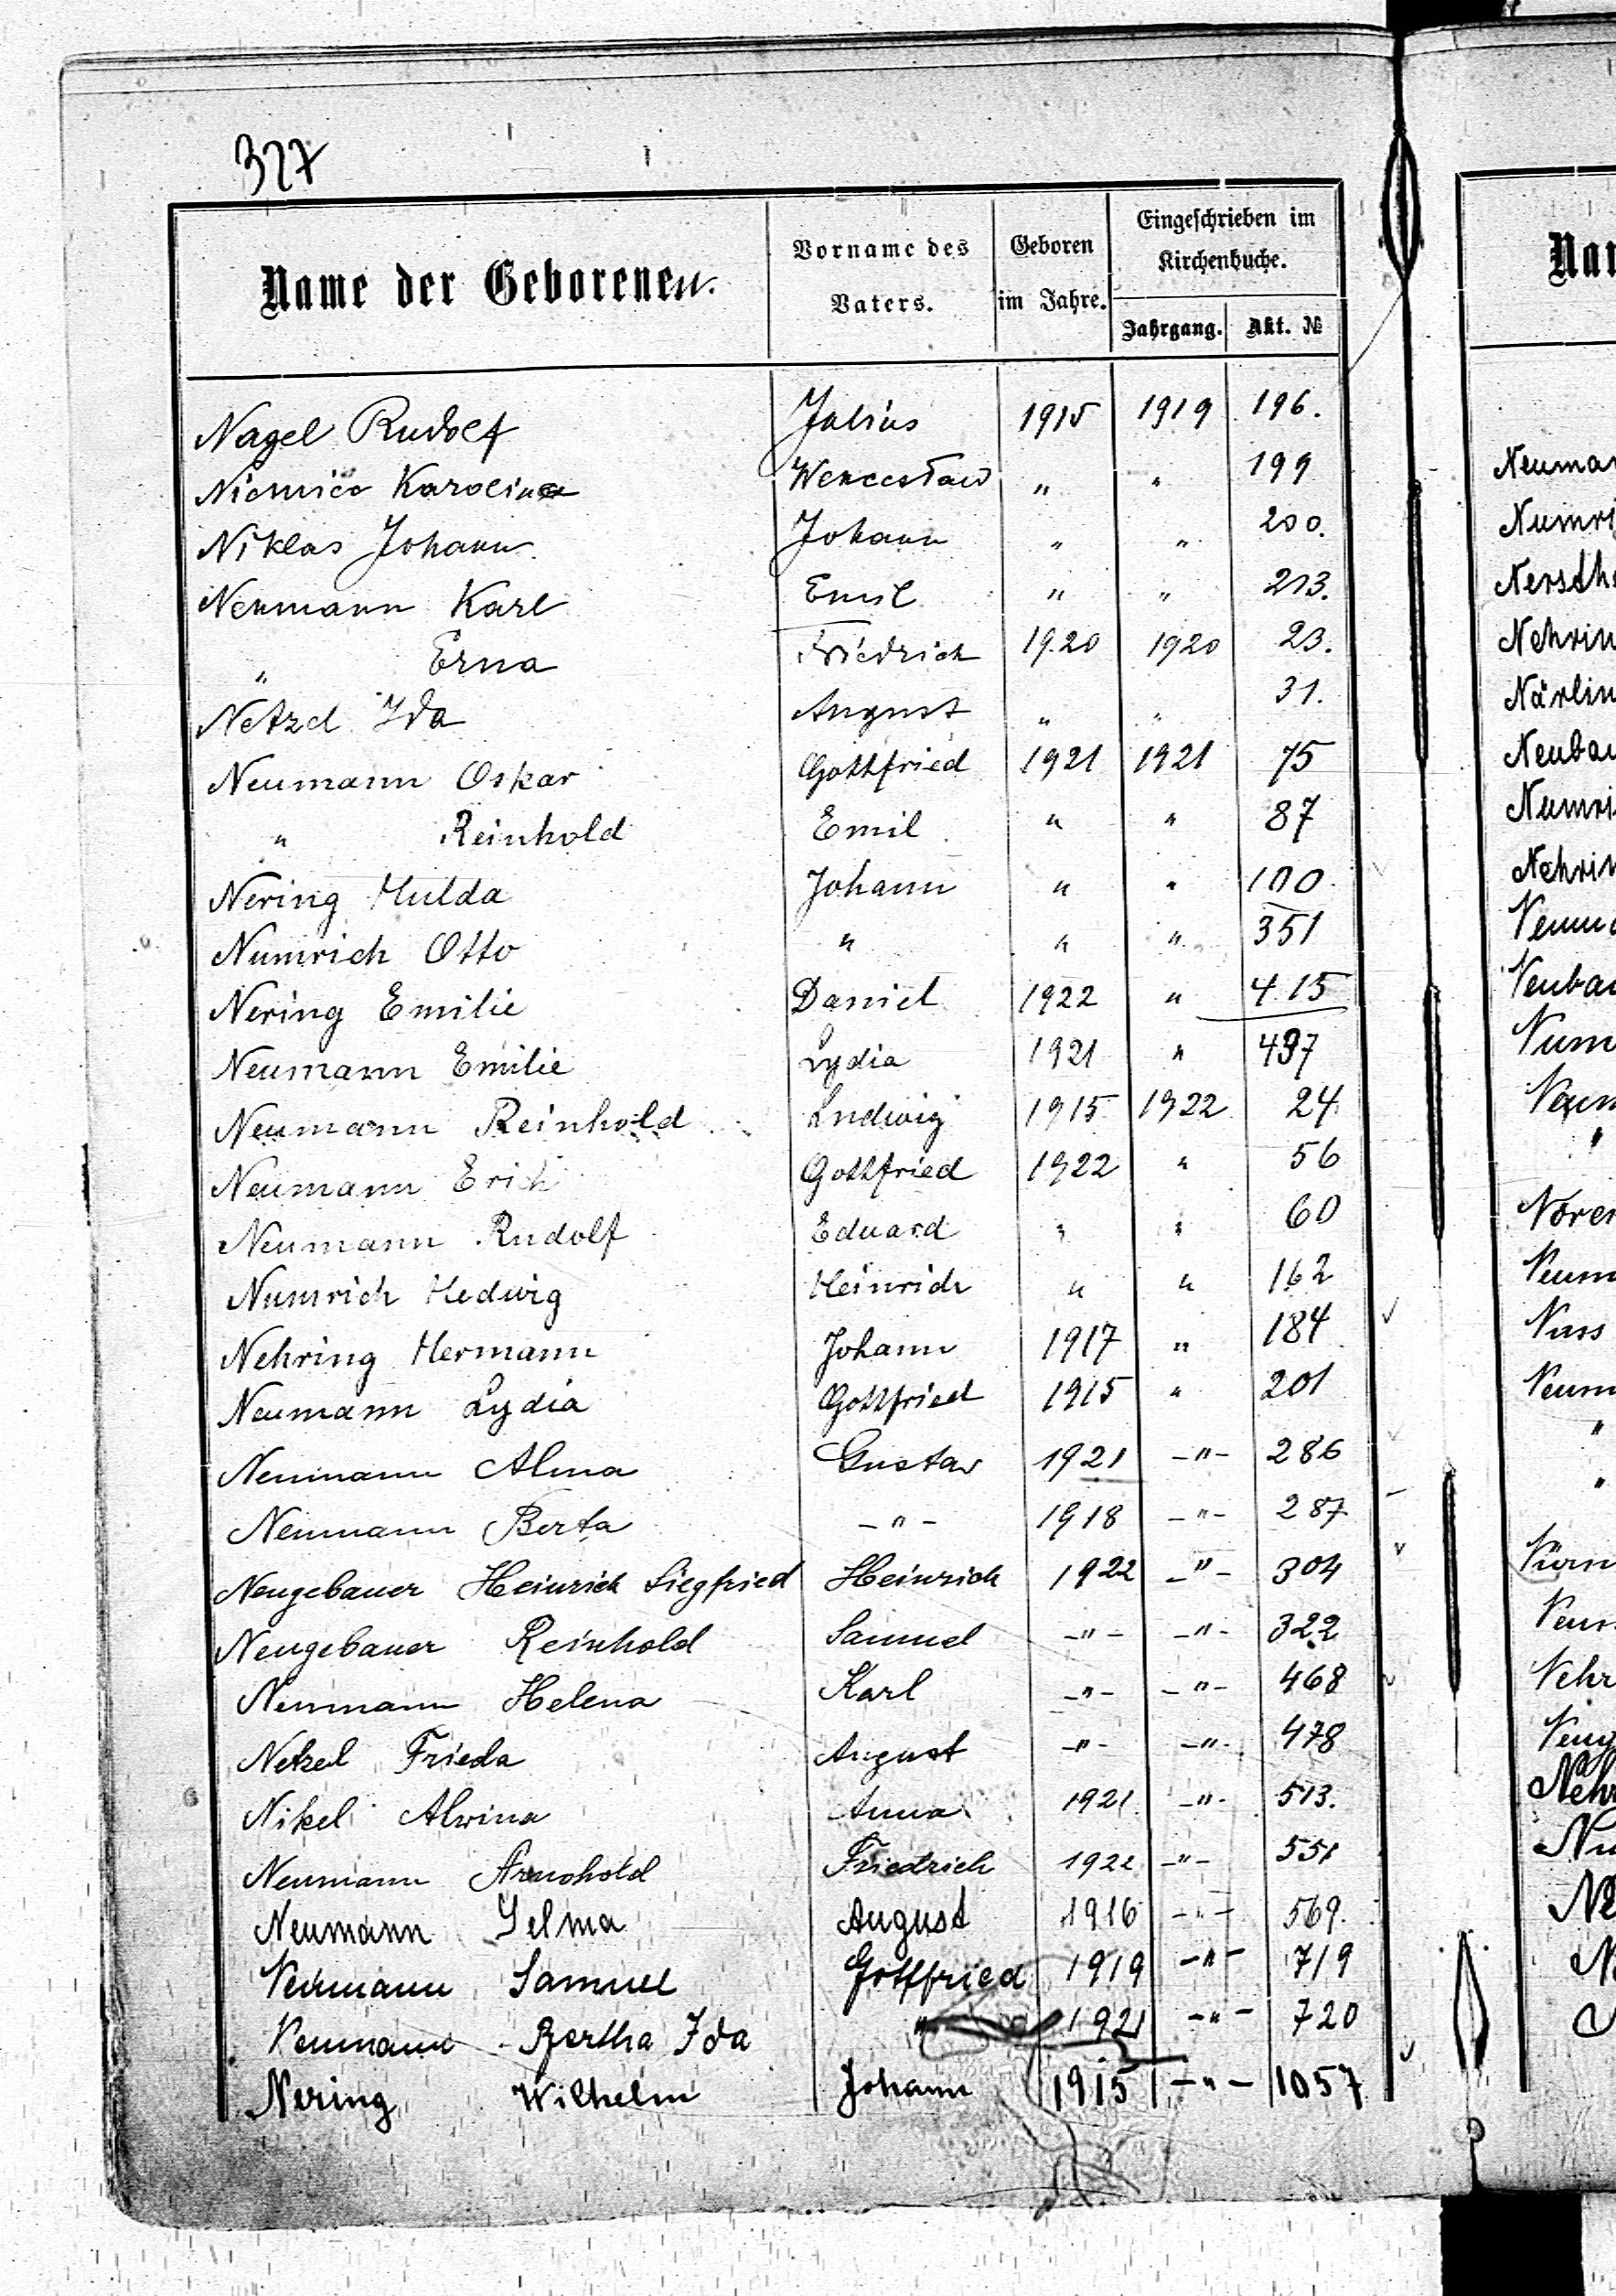 327
Name der Geborenen. Vorname des Vaters. Geboren im Jahre. Eingeschrieben im Kirchenbuche. Jahrgang. Akt. №
Nagel Rudolf Julius 1915 1919 196.
Niemiec Karolina Wencesław " " 199
Niklas Johann Johann " " 200.
Neumann Karl Emil " " 213.
" Erna Friedrich 1920 1920 23.
Netzel Ida August " " 31.
Neumann Oskar Gottfried 1921 1921 75
" Reinhold Emil " " 87
Nering Hulda Johann " " 100
Numrich Otto " " " 351
Nering Emilie Daniel 1922 " 415
Neumann Emilie Lydia 1921 " 497
Neumann Reinhold Ludwig 1915 1922 24
Neumann Erich Gottfried 1922 " 56
Neumann Rudolf Eduard " " 60
Numrich Hedwig Heinrich " " 162
Nehring Hermann Johann 1917 " 184
Neumann Lydia Gottfried 1915 " 201
Neumann Alma Gustav 1921 -"- 286
Neumann Berta -"- 1918 -"- 287
Neugebauer Heinrich Siegfried Heinrich 1922 -"- 304
Neugebauer Reinhold Samuel -"- -"- 322
Neumann Helena Karl -"- -"- 468
Netzel Frieda August -"- -"- 478
Nikel Alwina Anna 1921 -"- 513.
Neumann Arnohold Friedrich 1922 -"- 551
Neumann Selma August 1916 -"- 569.
Neumann Samuel Gottfried 1919 -"- 719
Neumann Bertha Ida " 1921 -"- 720
Nering Wilhelm Johann 1915 -"- 1057